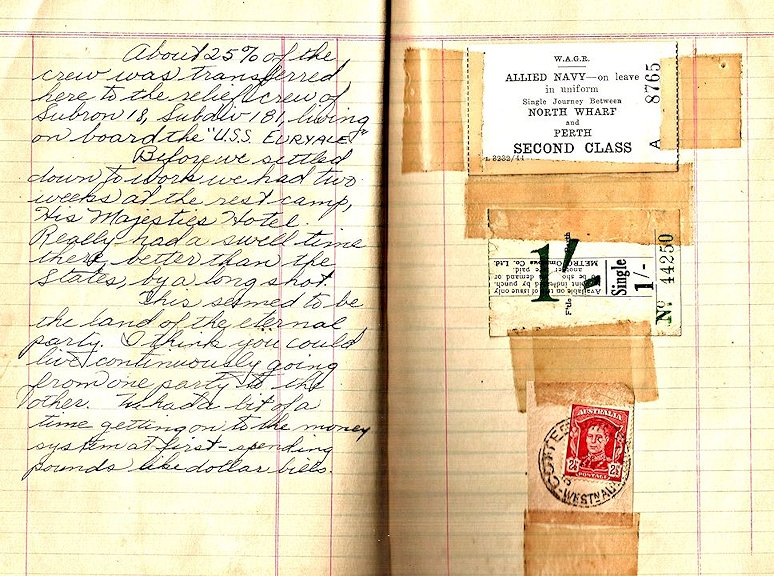 About 25% of the
crew was transferred
here to the relief crew of
Subron 18, Subdiv 181, living
on board the "U.S.S. EURYALE"
Before we settled
down to work we had two
weeks at the rest camp,
His Majesties Hotel.
Really had a swell time
there, better than the
States, by a long shot.
This seemed to be
the land of the eternal
party. I think you could
live continuously going
from one party to the
other. We had a bit of a
time getting on to the money
system at first - spending
pounds like dollar bills.
W.A.G.R.
ALLIED NAVY—on leave
in uniform
Single Journey Between
NORTH WHARF
and
PERTH
SECOND CLASS
L 3232/44
A 8765
1/-
METRO Omnibus Co. Ltd.
Available on
of issue only
indented by punch.
be shown on demand or
another fare paid.
Single
1/-
No 44250
AUSTRALIA
2½ 2½
POSTAGE
WEST AU